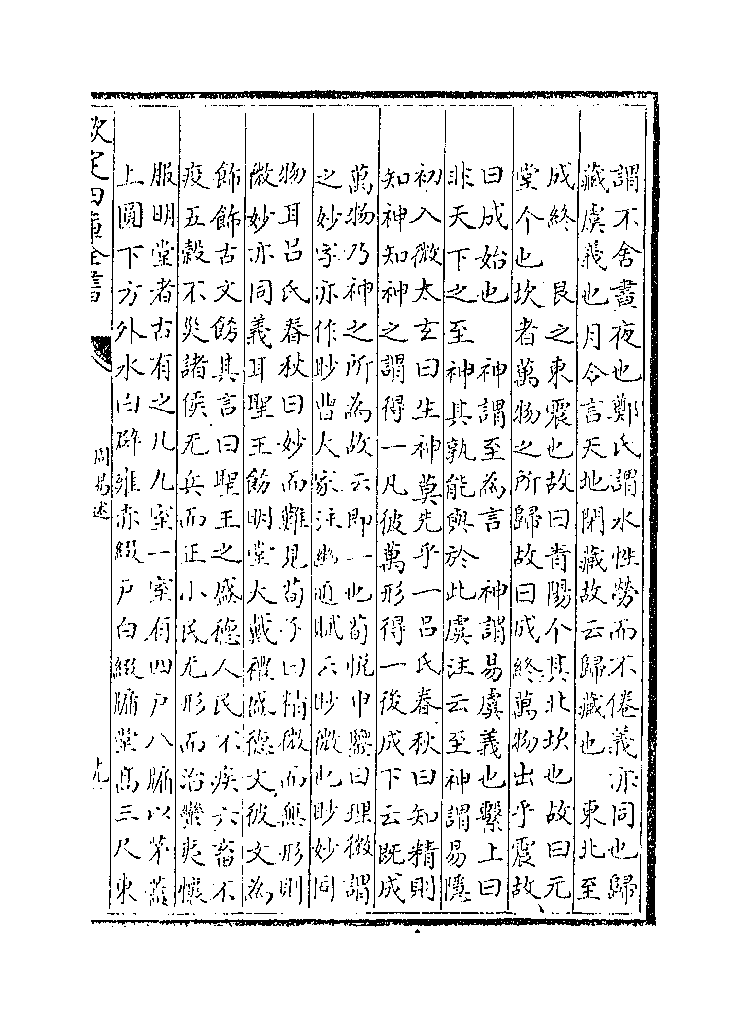 謂不舍晝夜也鄭氏謂水性勞而不倦義亦同也歸
藏虞義也月令言天地閉藏故云歸藏也　東北至
成終　艮之東震也故曰青陽个其北坎也故曰元
堂个也坎者萬物之所歸故曰成終萬物出乎震故
曰成始也　神謂至為言　神謂易虞義也繫上曰
非天下之至神其孰能與於此虞注云至神謂易隱
初入微太玄曰生神莫先乎一吕氏春秋曰知精則
知神知神之謂得一凡彼萬形得一後成下云既成
萬物乃神之所為故云即一也荀悅申鑒曰理微謂
之妙字亦作眇曹大家注幽通賦云眇微也眇妙同
物耳吕氏春秋曰妙而難見荀子曰精微而無形則
微妙亦同義耳聖王飭明堂大戴禮盛德文彼文為
飾飾古文飭其言曰聖王之盛德人民不疾六畜不
疫五穀不災諸侯无兵而正小民无形而治蠻夷懷
服明堂者古有之凡九室一室有四户八牖以茅葢
上圓下方外水曰辟雍赤綴户白綴牖堂髙三尺東
欽定四庫全書
周易述